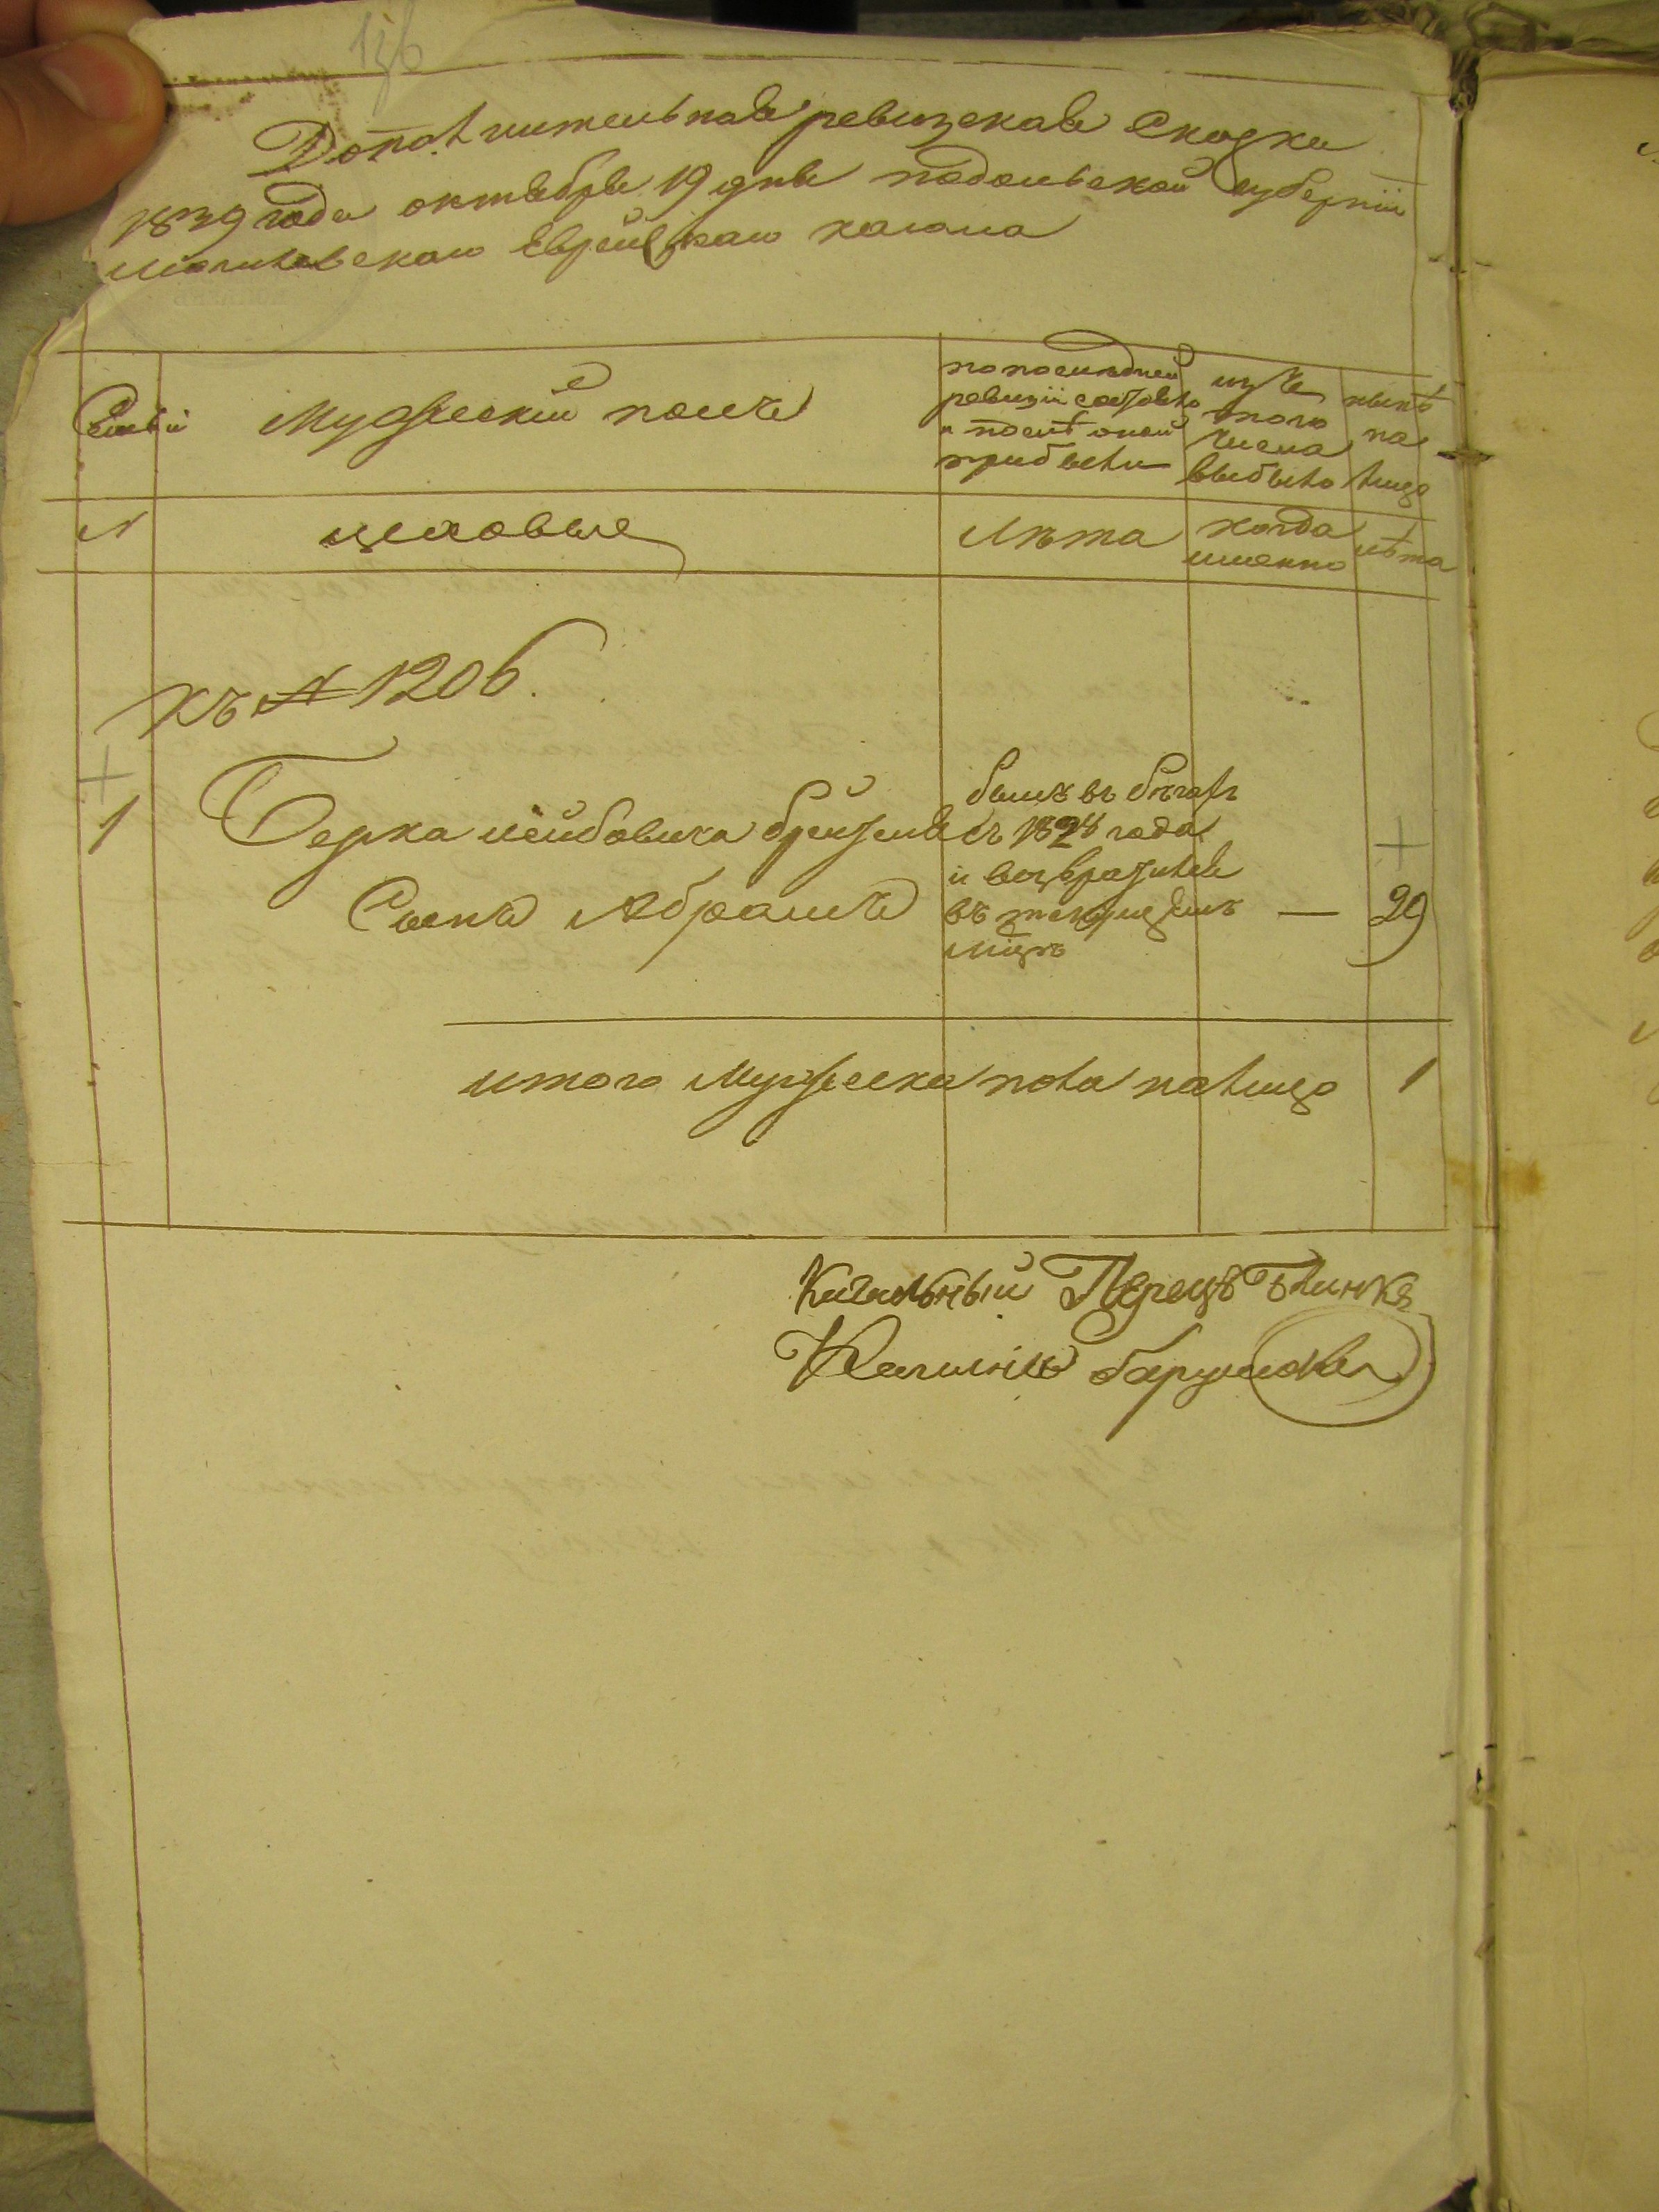 136
Дополнительная ревизская сказка
1839 года октября 19 дня подольской губернии
могилевского Еврейскаго кагала
Семьи
Мужескій полъ
по последней
ревизіи состояло
и послѣ оной
прибыло
изъ
того
числа
выбыло
нынѣ
на
лицо
№
цеховые
Лѣта
когда
именно
лѣта
Къ № 1206.
1
Берка лейбовича
Сынъ Абрамъ
былъ въ бѣгахъ
съ 1824 года
и возвратился
въ текущемъ
— 29
итого Мужеска пола налицо 1
Кагальный Перецъ Блинкъ